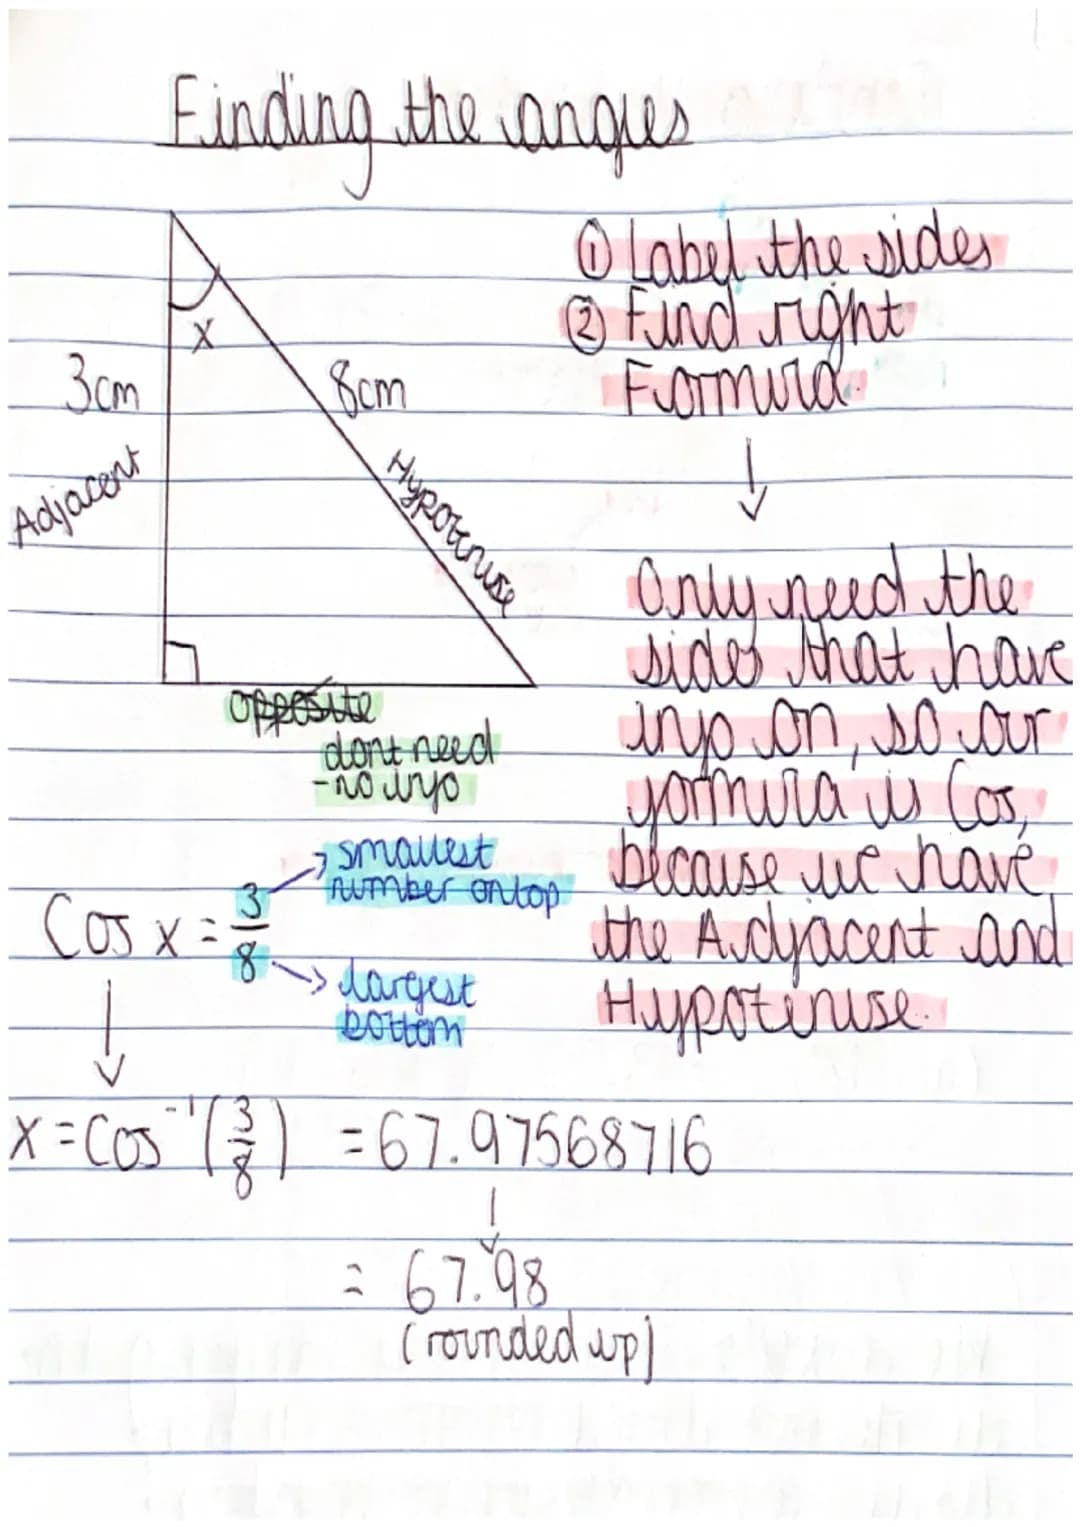 Finding the angles
① Label the sides
② Find right
Formula.
x
3cm
8cm
Adjacent
Hypotenuse
Only need the
sides that have
info on, so our
formula is Cos,
because we have
the Adjacent and
Hypotenuse.
opposite
dont need
-no info
Cos x = 3/8
smallest
number on top
largest
bottom
x = Cos⁻¹(3/8) = 67.97568716
= 67.98
(rounded up)